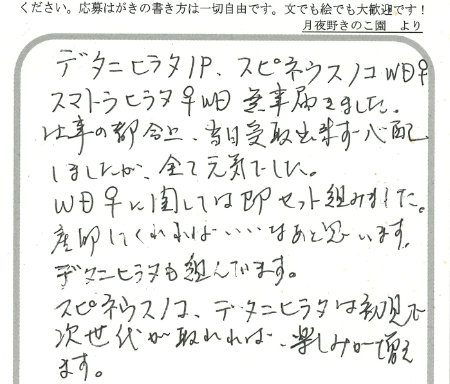 ください。応募はがきの書き方は一切自由です。文でも絵でも大歓迎です!
月夜野きのこ園 より
デタニヒラタ1P、スピネウスノコWD♀
スマトラヒラタ♀WD 無事届きました。
仕事の都合上、当日受取出来ず心配
しましたが、全て元気でした。
WD♀に関しては即セット組みました。
産卵してくれれば・・・・なあと思います。
デタニヒラタも組んでいます。
スピネウスノコ、デタニヒラタは初現で
次世代が取れれば、楽しみが増え
ます。